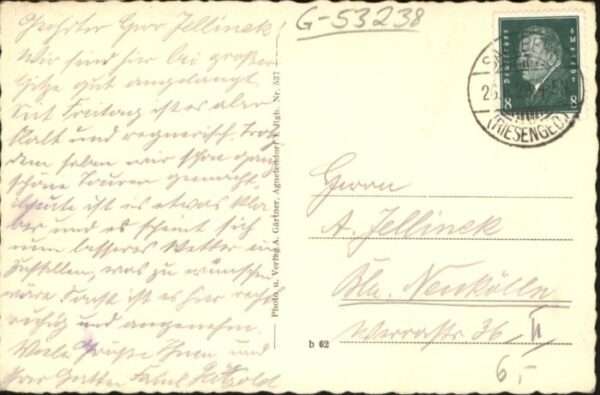 G-53238
Geehrter Herr Jellinek,
Wir sind hier bei großer
Hitze gut angelangt.
Seit Freitag ist es aber
kalt und regnerisch. Trotz-
dem haben wir schon ganz
schöne Touren gemacht.
Heute ist es etwas kla-
rer und es scheint sich
zum besseres Wetter ein
zustellen, was zu wünschen
wäre. Sonst ist es hier recht
ruhig und angenehm.
Viele Grüße Ihnen und
Ihrer Gattin
Photo. u. Verlag A. Gärtner, Agnetendorf i. Rgb. Nr. 527
Deutsches Reich
8 8
26.
(RIESENGEB.)
Herrn
A. Jellinek
Bln. Neukölln
Werrastr. 36 II
b 62
6,-